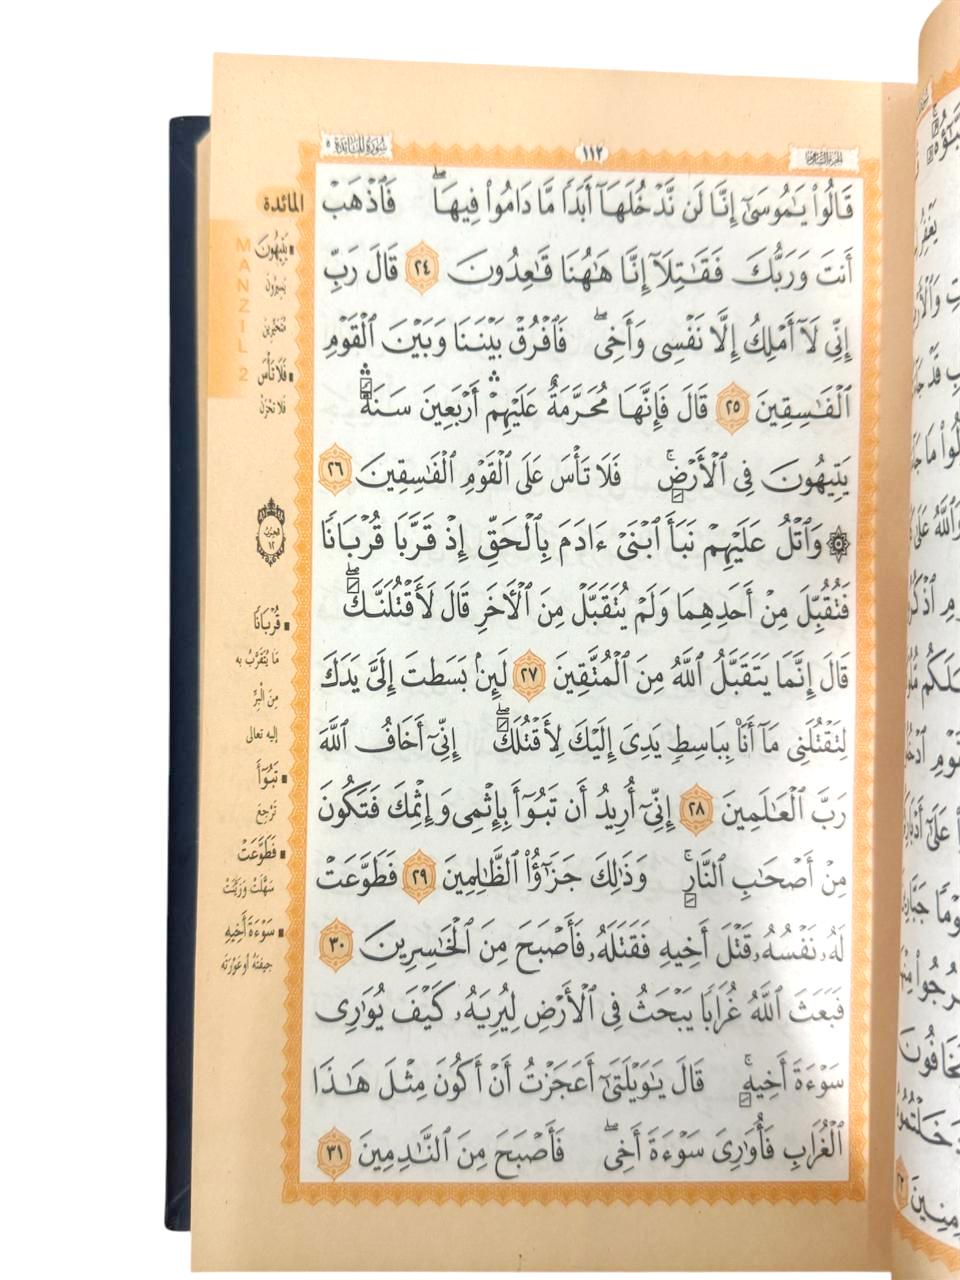 سُورَةُ المَائِدَة ٥
١١٢
الجزء السادس
قَالُوا۟ يَـٰمُوسَىٰٓ إِنَّا لَن نَّدْخُلَهَآ أَبَدًا مَّا دَامُوا۟ فِيهَا ۖ فَٱذْهَبْ
أَنتَ وَرَبُّكَ فَقَـٰتِلَآ إِنَّا هَـٰهُنَا قَـٰعِدُونَ ٢٤ قَالَ رَبِّ
إِنِّى لَآ أَمْلِكُ إِلَّا نَفْسِى وَأَخِى ۖ فَٱفْرُقْ بَيْنَنَا وَبَيْنَ ٱلْقَوْمِ
ٱلْفَـٰسِقِينَ ٢٥ قَالَ فَإِنَّهَا مُحَرَّمَةٌ عَلَيْهِمْ ۛ أَرْبَعِينَ سَنَةً ۛ
يَتِيهُونَ فِى ٱلْأَرْضِ ۚ فَلَا تَأْسَ عَلَى ٱلْقَوْمِ ٱلْفَـٰسِقِينَ ٢٦
۞ وَٱتْلُ عَلَيْهِمْ نَبَأَ ٱبْنَىْ ءَادَمَ بِٱلْحَقِّ إِذْ قَرَّبَا قُرْبَانًا
فَتُقُبِّلَ مِنْ أَحَدِهِمَا وَلَمْ يُتَقَبَّلْ مِنَ ٱلْـَٔاخَرِ قَالَ لَأَقْتُلَنَّكَ ۖ
قَالَ إِنَّمَا يَتَقَبَّلُ ٱللَّهُ مِنَ ٱلْمُتَّقِينَ ٢٧ لَئِنۢ بَسَطتَ إِلَىَّ يَدَكَ
لِتَقْتُلَنِى مَآ أَنَا۠ بِبَاسِطٍ يَدِىَ إِلَيْكَ لِأَقْتُلَكَ ۖ إِنِّىٓ أَخَافُ ٱللَّهَ
رَبَّ ٱلْعَـٰلَمِينَ ٢٨ إِنِّىٓ أُرِيدُ أَن تَبُوٓأَ بِإِثْمِى وَإِثْمِكَ فَتَكُونَ
مِنْ أَصْحَـٰبِ ٱلنَّارِ ۚ وَذَٰلِكَ جَزَٰٓؤُا۟ ٱلظَّـٰلِمِينَ ٢٩ فَطَوَّعَتْ
لَهُۥ نَفْسُهُۥ قَتْلَ أَخِيهِ فَقَتَلَهُۥ فَأَصْبَحَ مِنَ ٱلْخَـٰسِرِينَ ٣٠
فَبَعَثَ ٱللَّهُ غُرَابًا يَبْحَثُ فِى ٱلْأَرْضِ لِيُرِيَهُۥ كَيْفَ يُوَٰرِى
سَوْءَةَ أَخِيهِ ۚ قَالَ يَـٰوَيْلَتَىٰٓ أَعَجَزْتُ أَنْ أَكُونَ مِثْلَ هَـٰذَا
ٱلْغُرَابِ فَأُوَٰرِىَ سَوْءَةَ أَخِى ۖ فَأَصْبَحَ مِنَ ٱلنَّـٰدِمِينَ ٣١
المائدة
MANZIL 2
يَتِيهُونَ
يَسِيرُونَ
مُتَحَيِّرِينَ
فَلَا تَأْسَ
فَلَا تَحْزَنْ
الحزب
١٢
قُرْبَانًا
مَا يُتَقَرَّبُ بِهِ
مِنَ الْبِرِّ
إليه تعالى
تَبُوٓأَ
تَرْجِعَ
فَطَوَّعَتْ
سَهَّلَتْ وَزَيَّنَتْ
سَوْءَةَ أَخِيهِ
جِيفَتَهُ أَوْ عَوْرَتَهُ